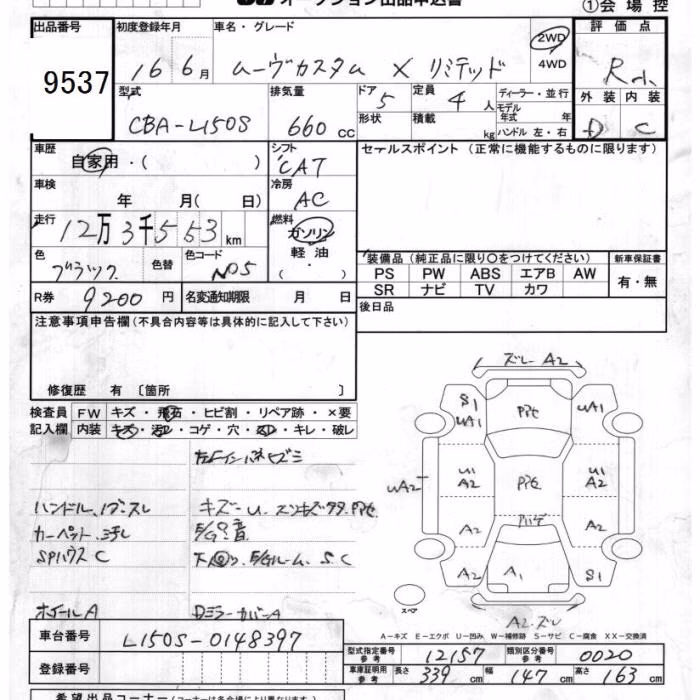 オークション出品申込書
①会場控
出品番号
9537
初度登録年月
16 6月
車名・グレード
ムーヴカスタム X リミテッド
2WD
4WD
評価点
R
外装 内装
D C
型式
CBA-L150S
排気量
660 cc
ドア
5
定員
4人
形状
積載
kg
ディーラー・並行
モデル年式 年
ハンドル 左・右
車歴
自家用・( )
シフト
CAT
セールスポイント (正常に機能するものに限ります)
車検
年 月( 日)
冷房
AC
走行
12万3千553km
燃料
ガソリン
軽油
( ・ )
色
ブラック
色替
色コード
N05
装備品 (純正品に限り○をつけてください)
新車保証書
PS PW ABS エアB AW
SR ナビ TV カワ
有・無
R券
9200円
名変通知期限 月 日
後日品
注意事項申告欄 (不具合内容等は具体的に記入して下さい)
修復歴 有 〔箇所 〕
検査員
記入欄
FW キズ・飛石・ヒビ割・リペア跡・×要
内装 キズ・汚レ・コゲ・穴・スレ・キレ・破レ
左Fインパネヒズミ
ハンドル、ノブスレ
カーペット汚し
SPハウスC
キズ-U
E/G音
E/Gルーム S.C
ホイールA
Dミラーカバー A
ズレ A2
S1
UA1
PPモ
UA1
UA2
U1
A2
PPモ
U1
A2
A2
A2
A2
A1
S1
スペア
A2.ズレ
A-キズ E-エクボ U-凹み W-補修跡 S-サビ C-腐食 XX-交換済
車台番号
L150S-0148397
型式指定番号
参考
12157
類別区分番号
参考
0020
登録番号
車庫証明用
参考
長さ 339 cm
幅 147 cm
高さ 163 cm
希望出品コーナー(コーナー名は各会場により異なります)